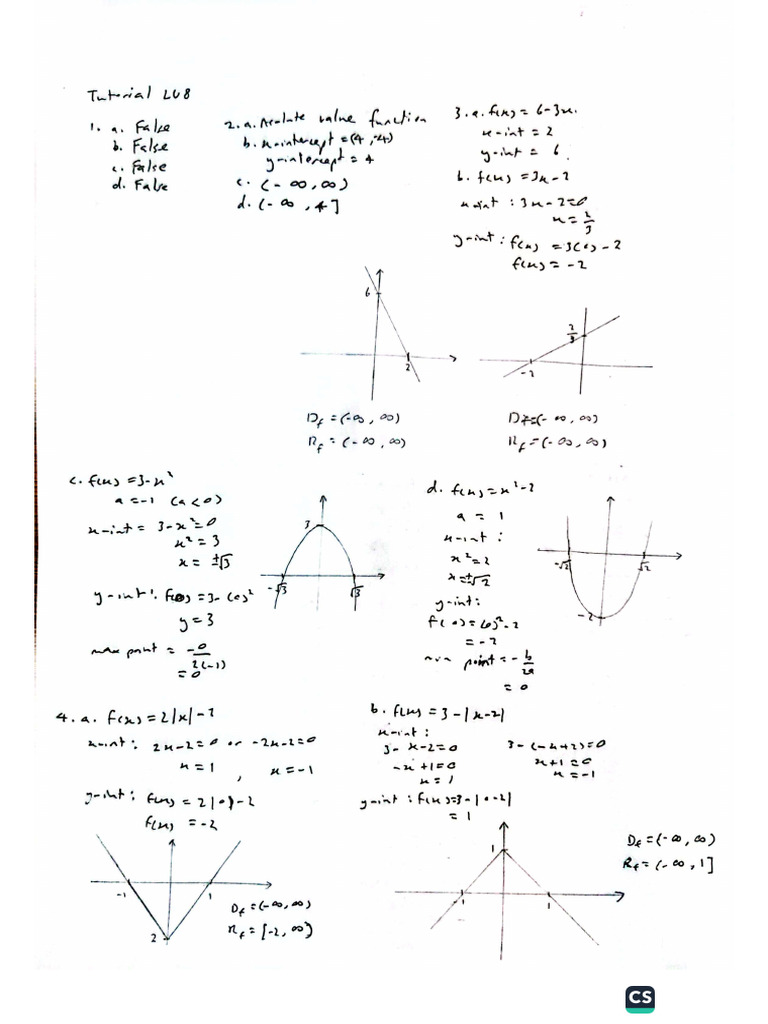 Tutorial LU8
1. a. False
b. False
c. False
d. False
2. a. Absolute value function
b. x-intercept = (4, -4)
y-intercept = 4
c. (-∞, ∞)
d. (-∞, 4]
3. a. f(x) = 6-3x.
x-int = 2
y-int = 6.
b. f(x) = 3x-2
x-int : 3x-2=0
x = 2/3
y-int : f(x) = 3(0)-2
f(x) = -2
6
2
D_f = (-∞, ∞)
R_f = (-∞, ∞)
2/3
-2
D_f = (-∞, ∞)
R_f = (-∞, ∞)
c. f(x) = 3-x²
a = -1 (a<0)
x-int = 3-x²=0
x² = 3
x = ±√3
y-int : f(0) = 3-(0)²
y = 3
max point = -0/2(-1)
= 0
3
-√3
√3
d. f(x) = x²-2
a = 1
x-int :
x² = 2
x = ±√2
y-int :
f(0) = (0)²-2
= -2
min point = -b/2a
= 0
-√2
√2
-2
4. a. f(x) = 2|x|-2
x-int : 2x-2=0 or -2x-2=0
x = 1 , x = -1
y-int : f(x) = 2|0|-2
f(x) = -2
-1
1
2
D_f = (-∞, ∞)
R_f = [-2, ∞)
b. f(x) = 3-|x-2|
x-int :
3-x-2=0
-x+1=0
x = 1
3-(-x+2)=0
x+1=0
x = -1
y-int : f(x)=3-|0-2|
= 1
1
-1
1
D_f = (-∞, ∞)
R_f = (-∞, 1]
CS